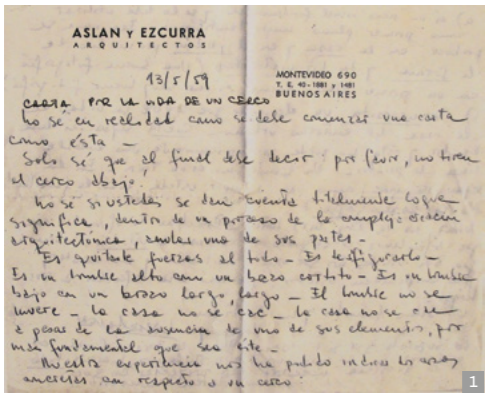 ASLAN Y EZCURRA
ARQUITECTOS
13/5/59
MONTEVIDEO 690
T. E. 40-1881 y 1481
BUENOS AIRES
CARTA POR LA VIDA DE UN CERCO
No sé en realidad como se debe comenzar una carta
como ésta -
Solo sé que al final debe decir: por favor, no tiren
el cerco abajo!
No sé si ustedes se dan cuenta totalmente lo que
significa, dentro de un proceso de
arquitectónica, anular una de sus partes -
Es quitarle fuerzas al todo - Es desfigurarlo -
Es un hombre alto con un brazo cortito - Es un hombre
bajo con un brazo largo, largo - El hombre no se
muere - la casa no se cae - la casa no se cae
a pesar de la ausencia de uno de sus elementos, por
más fundamental que sea éste -
Nuestra experiencia nos ha podido indicar
concretas con respecto a un cerco:
1